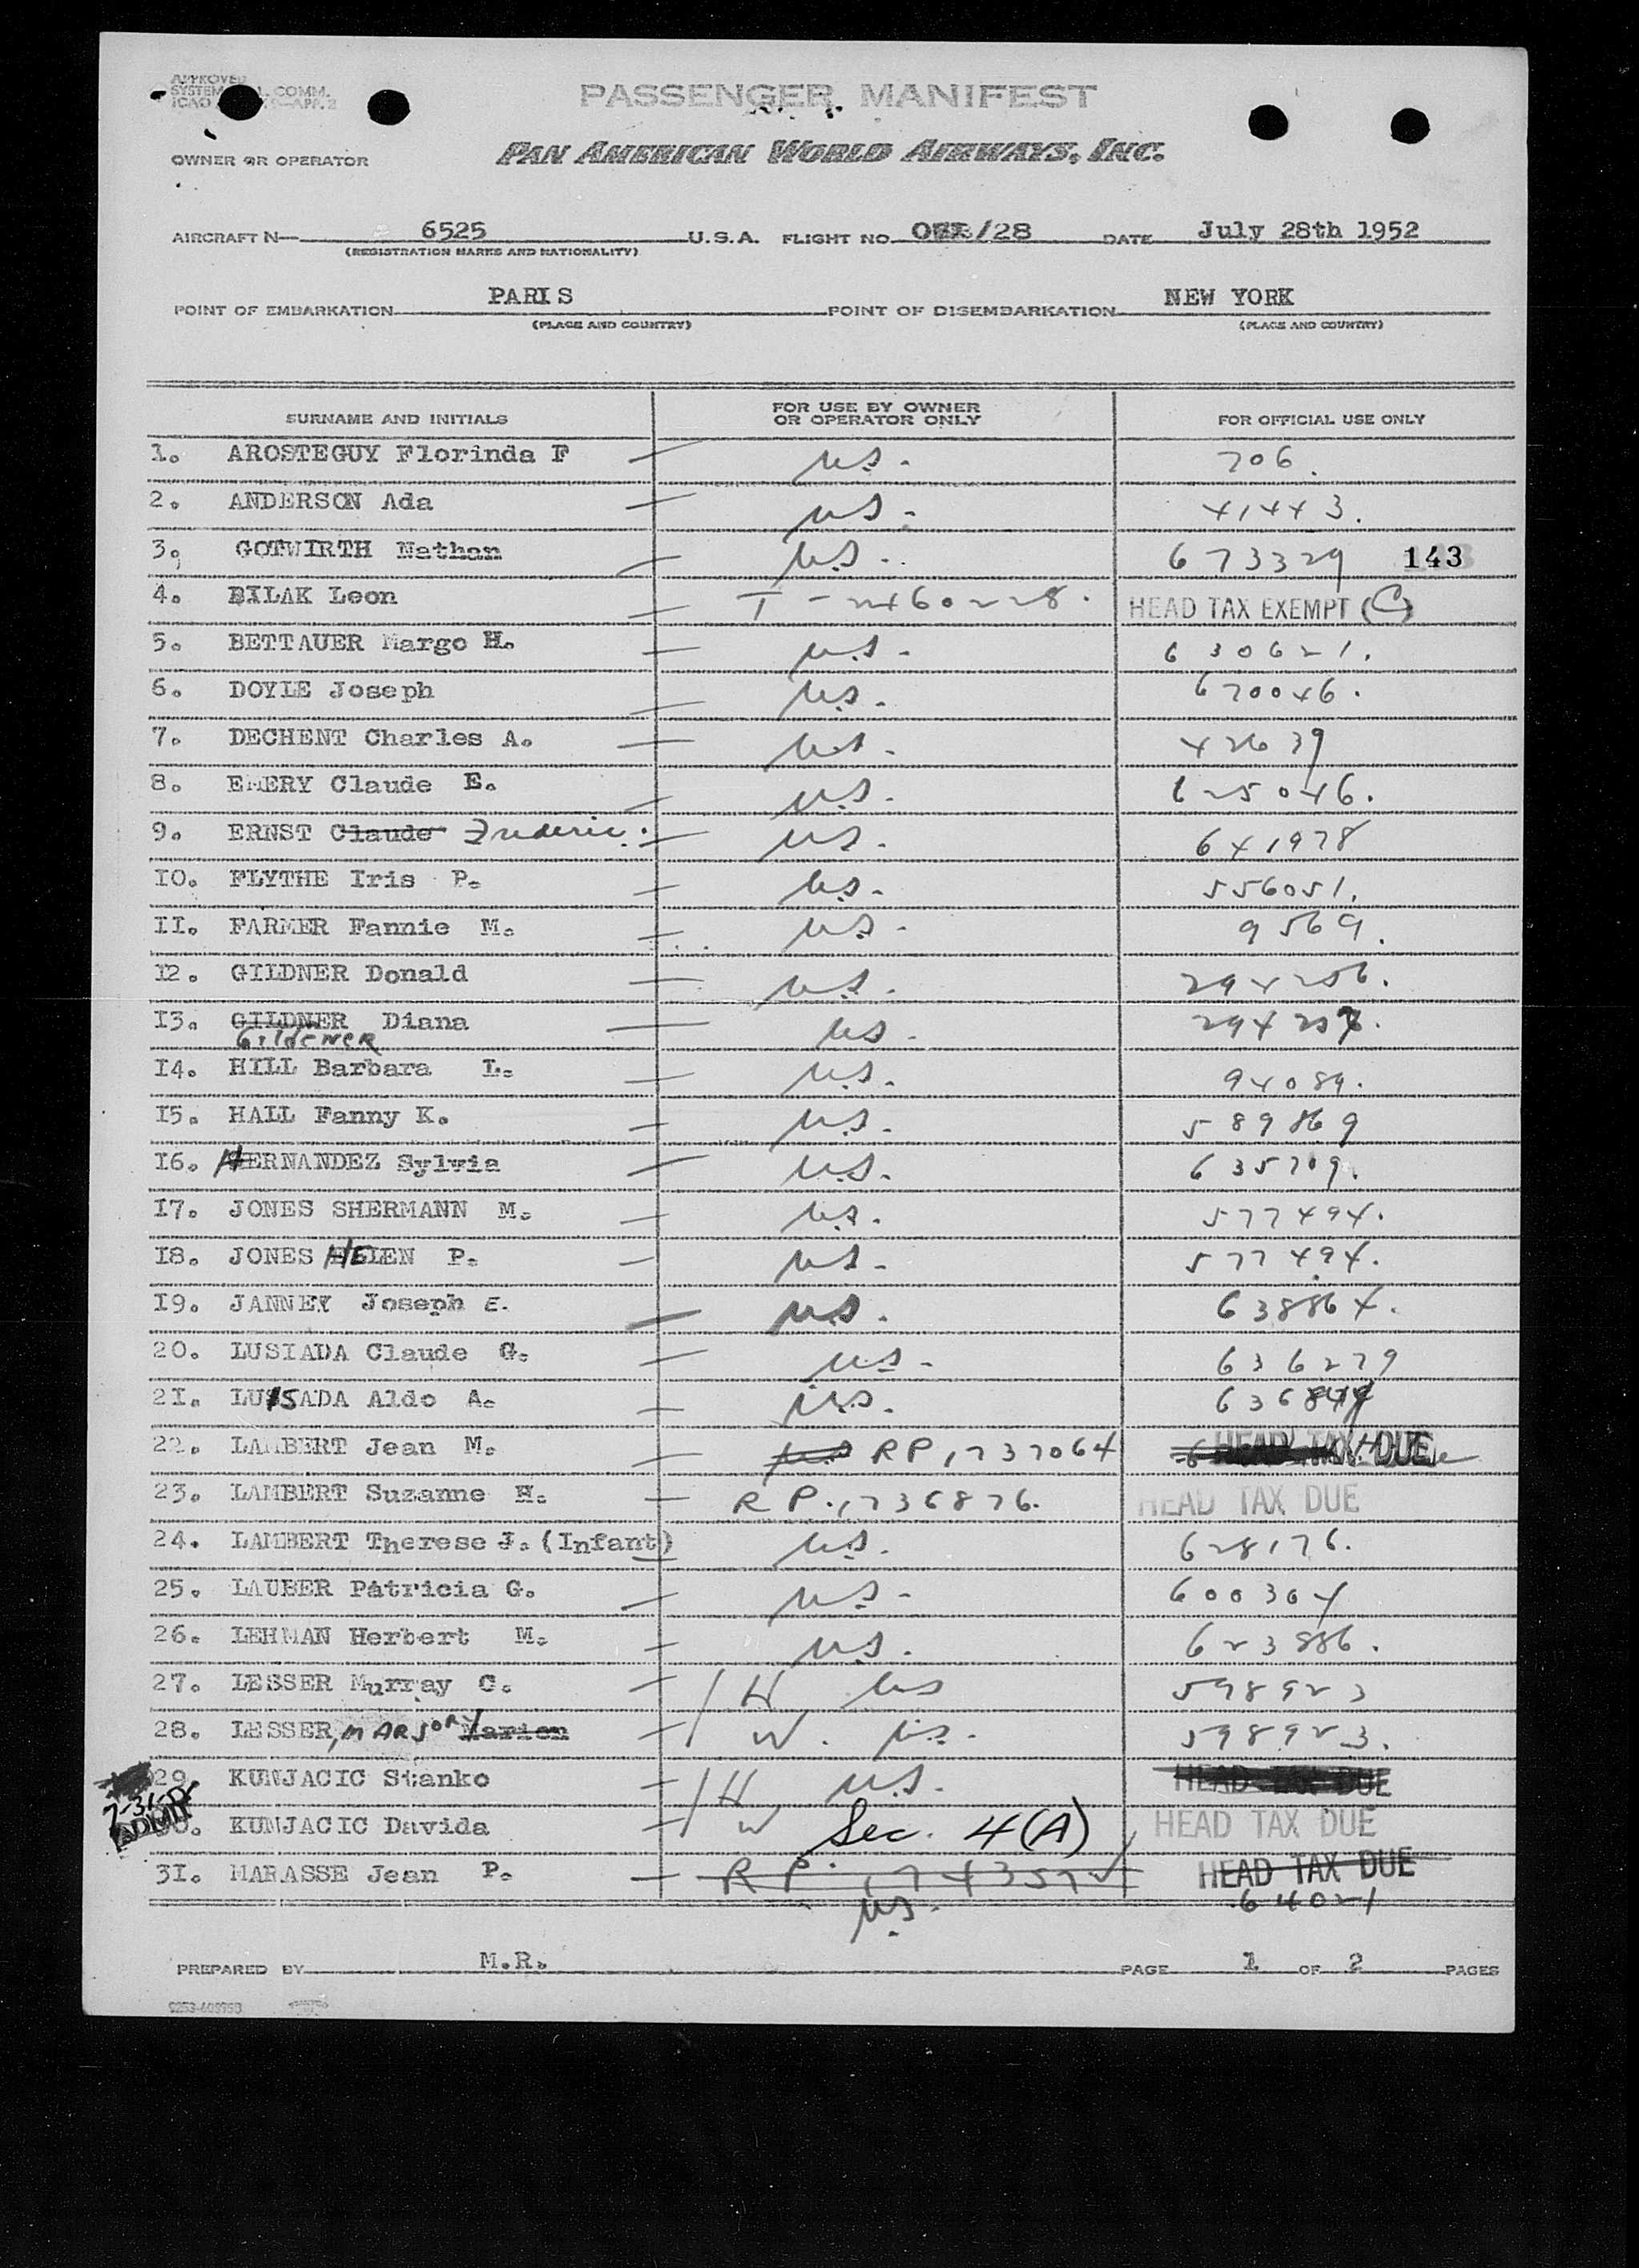 APPROVED
SYSTEM COMM.
ICAO APP. 2
PASSENGER MANIFEST
OWNER OR OPERATOR PAN AMERICAN WORLD AIRWAYS, INC.
AIRCRAFT N 6525 U.S.A. FLIGHT NO. /28 DATE July 28th 1952
(REGISTRATION MARKS AND NATIONALITY)
POINT OF EMBARKATION PARIS POINT OF DISEMBARKATION NEW YORK
(PLACE AND COUNTRY) (PLACE AND COUNTRY)
SURNAME AND INITIALS FOR USE BY OWNER OR OPERATOR ONLY FOR OFFICIAL USE ONLY
1. AROSTEGUY Florinda F U.S. 706.
2. ANDERSON Ada U.S. 41443.
3. GOTWIRTH Nathan U.S. 673329 143
4. BILAK Leon T-2460228. HEAD TAX EXEMPT (C)
5. BETTAUER Margo H. U.S. 630621.
6. DOYLE Joseph U.S. 670046.
7. DECHENT Charles A. U.S. 42639
8. EMERY Claude E. U.S. 625046.
9. ERNST Claude Frederic. U.S. 641978
10. FLYTHE Iris P. U.S. 556051.
11. FARMER Fannie M. U.S. 9569.
12. GILDNER Donald U.S. 294256.
13. GILDNER Diana U.S.
GildeNeR
14. HILL Barbara L. U.S. 94089.
15. HALL Fanny K. U.S. 589869
16. HERNANDEZ Sylvia U.S. 635709.
17. JONES SHERMANN M. U.S. 577494.
18. JONES HELEN P. U.S. 577494.
19. JANNEY Joseph E. U.S. 638864.
20. LUSIADA Claude G. U.S. 636279
21. LUISADA Aldo A. U.S.
22. LAMBERT Jean M. U.S. RP 1737064 HEAD TAX DUE
23. LAMBERT Suzanne H. RP. 1736876. HEAD TAX DUE
24. LAMBERT Therese J. (Infant) U.S. 628176.
25. LAUBER Patricia G. U.S. 600364
26. LEHMAN Herbert M. U.S. 623886.
27. LESSER Murray C. H US 598923
28. LESSER, MARJORY Marion W. U.S. 598923.
29. KUNJACIC Stanko H U.S. HEAD TAX DUE
7-31-52
ADMIT
30. KUNJACIC Davida W Sec. 4(A) HEAD TAX DUE
31. MARASSE Jean P. RP. 1743572 HEAD TAX DUE
U.S. 64021
PREPARED BY M.R. PAGE 1 OF 2 PAGES